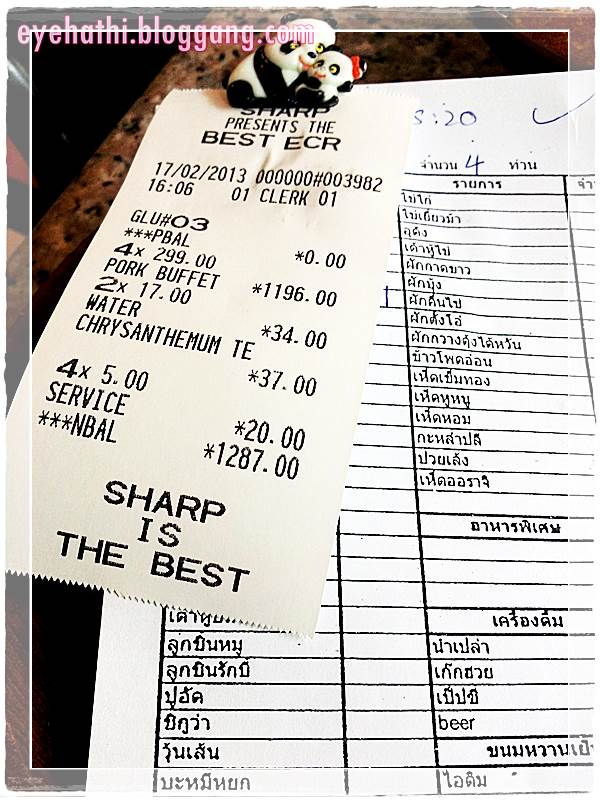 eyehathi.bloggang.com
SHARP
PRESENTS THE
BEST ECR
17/02/2013 000000#003982
16:06 01 CLERK 01
GLU#03
***PBAL *0.00
4x 299.00
PORK BUFFET *1196.00
2x 17.00
WATER *34.00
CHRYSANTHEMUM TE
*37.00
4x 5.00
SERVICE *20.00
***NBAL *1287.00
SHARP
IS
THE BEST
:20
จำนวน 4 ท่าน
รายการ
ไข่ไก่
ไข่เยี่ยวม้า
เต้าหู้ไข่
ผักกาดขาว
ผักบุ้ง
ผักตั้งโอ๋
ผักกวางตุ้งไต้หวัน
ข้าวโพดอ่อน
เห็ดเข็มทอง
เห็ดหูหนู
เห็ดหอม
กะหล่ำปลี
ปวยเล้ง
เห็ดออริจิ
อาหารพิเศษ
เครื่องดื่ม
ลูกชิ้นหมู น้ำเปล่า
ลูกชิ้นรักบี้ เก๊กฮวย
ปูอัด เป๊ปซี่
ชิกูว่า beer
วุ้นเส้น ขนมหวาน
บะหมี่หยก ไอติม